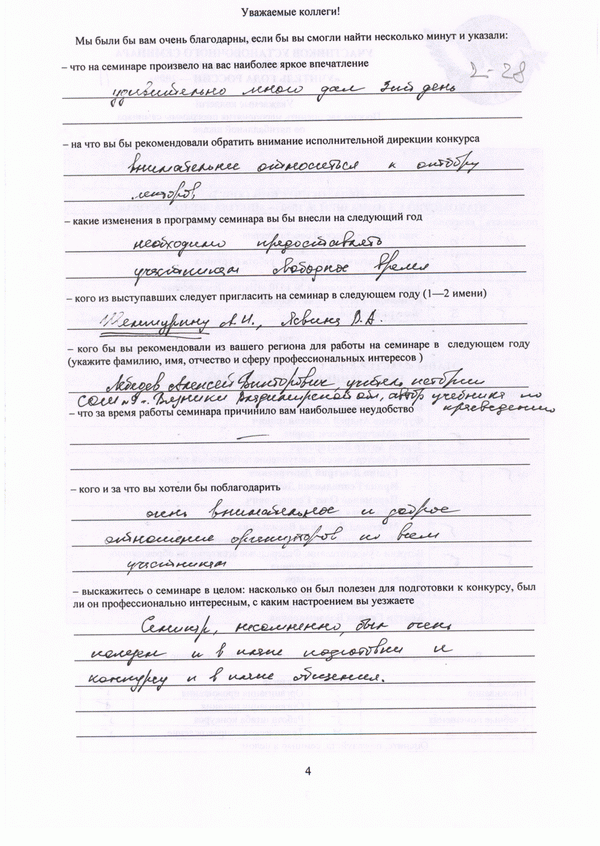 Уважаемые коллеги!
Мы были бы вам очень благодарны, если бы вы смогли найти несколько минут и указали:
– что на семинаре произвело на вас наиболее яркое впечатление
2-28
удивительно много дал 3ий день
– на что вы бы рекомендовали обратить внимание исполнительной дирекции конкурса
внимательнее относиться к отбору
лекторов
– какие изменения в программу семинара вы бы внесли на следующий год
необходимо предоставлять
участникам свободное время
– кого из выступавших следует пригласить на семинар в следующем году (1—2 имени)
А.И., Явина В.А.
– кого бы вы рекомендовали из вашего региона для работы на семинаре в следующем году
(укажите фамилию, имя, отчество и сферу профессиональных интересов )
Лебедев Алексей Викторович, учитель истории
СОШ №9 г. Вязники Владимирской обл, автор учебника по
краеведению
– что за время работы семинара причинило вам наибольшее неудобство
–
– кого и за что вы хотели бы поблагодарить
очень внимательное и доброе
отношение организаторов ко всем
участникам
– выскажитесь о семинаре в целом: насколько он был полезен для подготовки к конкурсу, был
ли он профессионально интересным, с каким настроением вы уезжаете
Семинар, несомненно, был очень
полезен и в плане подготовки к
конкурсу и в плане общения.
4